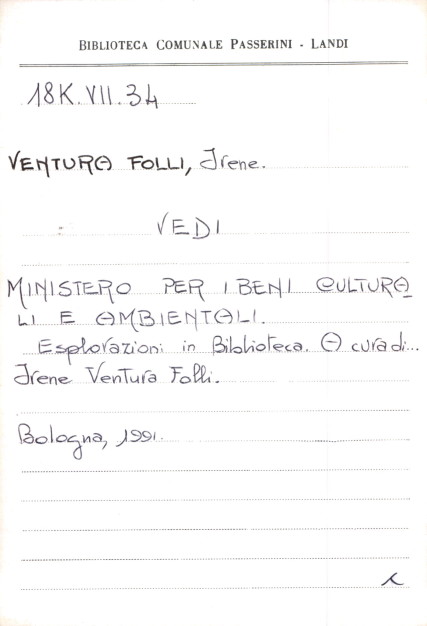 BIBLIOTECA COMUNALE PASSERINI - LANDI
18K.VII.34
VENTURA FOLLI, Irene.
VEDI
MINISTERO PER I BENI CULTURA
LI E AMBIENTALI.
Esplorazioni in Biblioteca. A cura di...
Irene Ventura Folli.
Bologna, 1991.